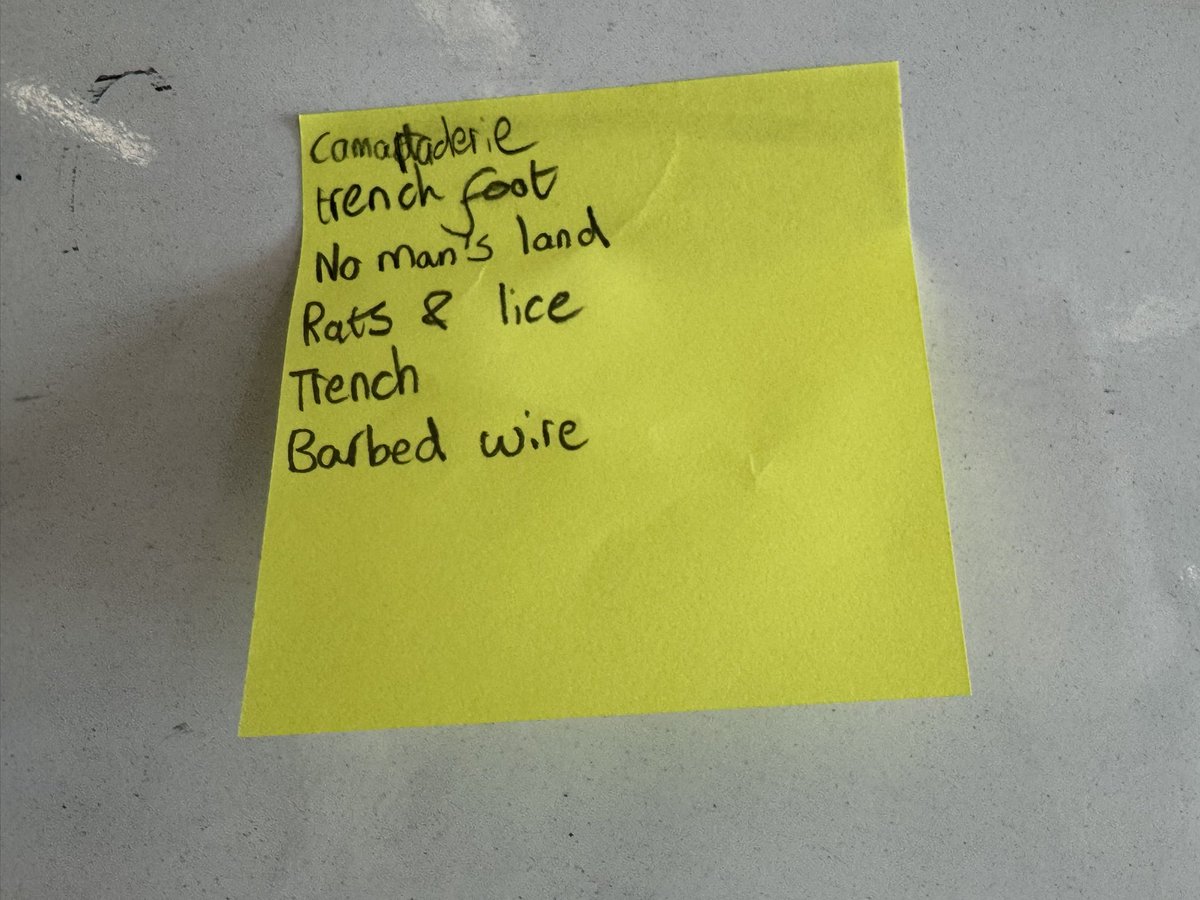 Camaraderie
trench foot
No man's land
Rats & lice
Trench
Barbed wire